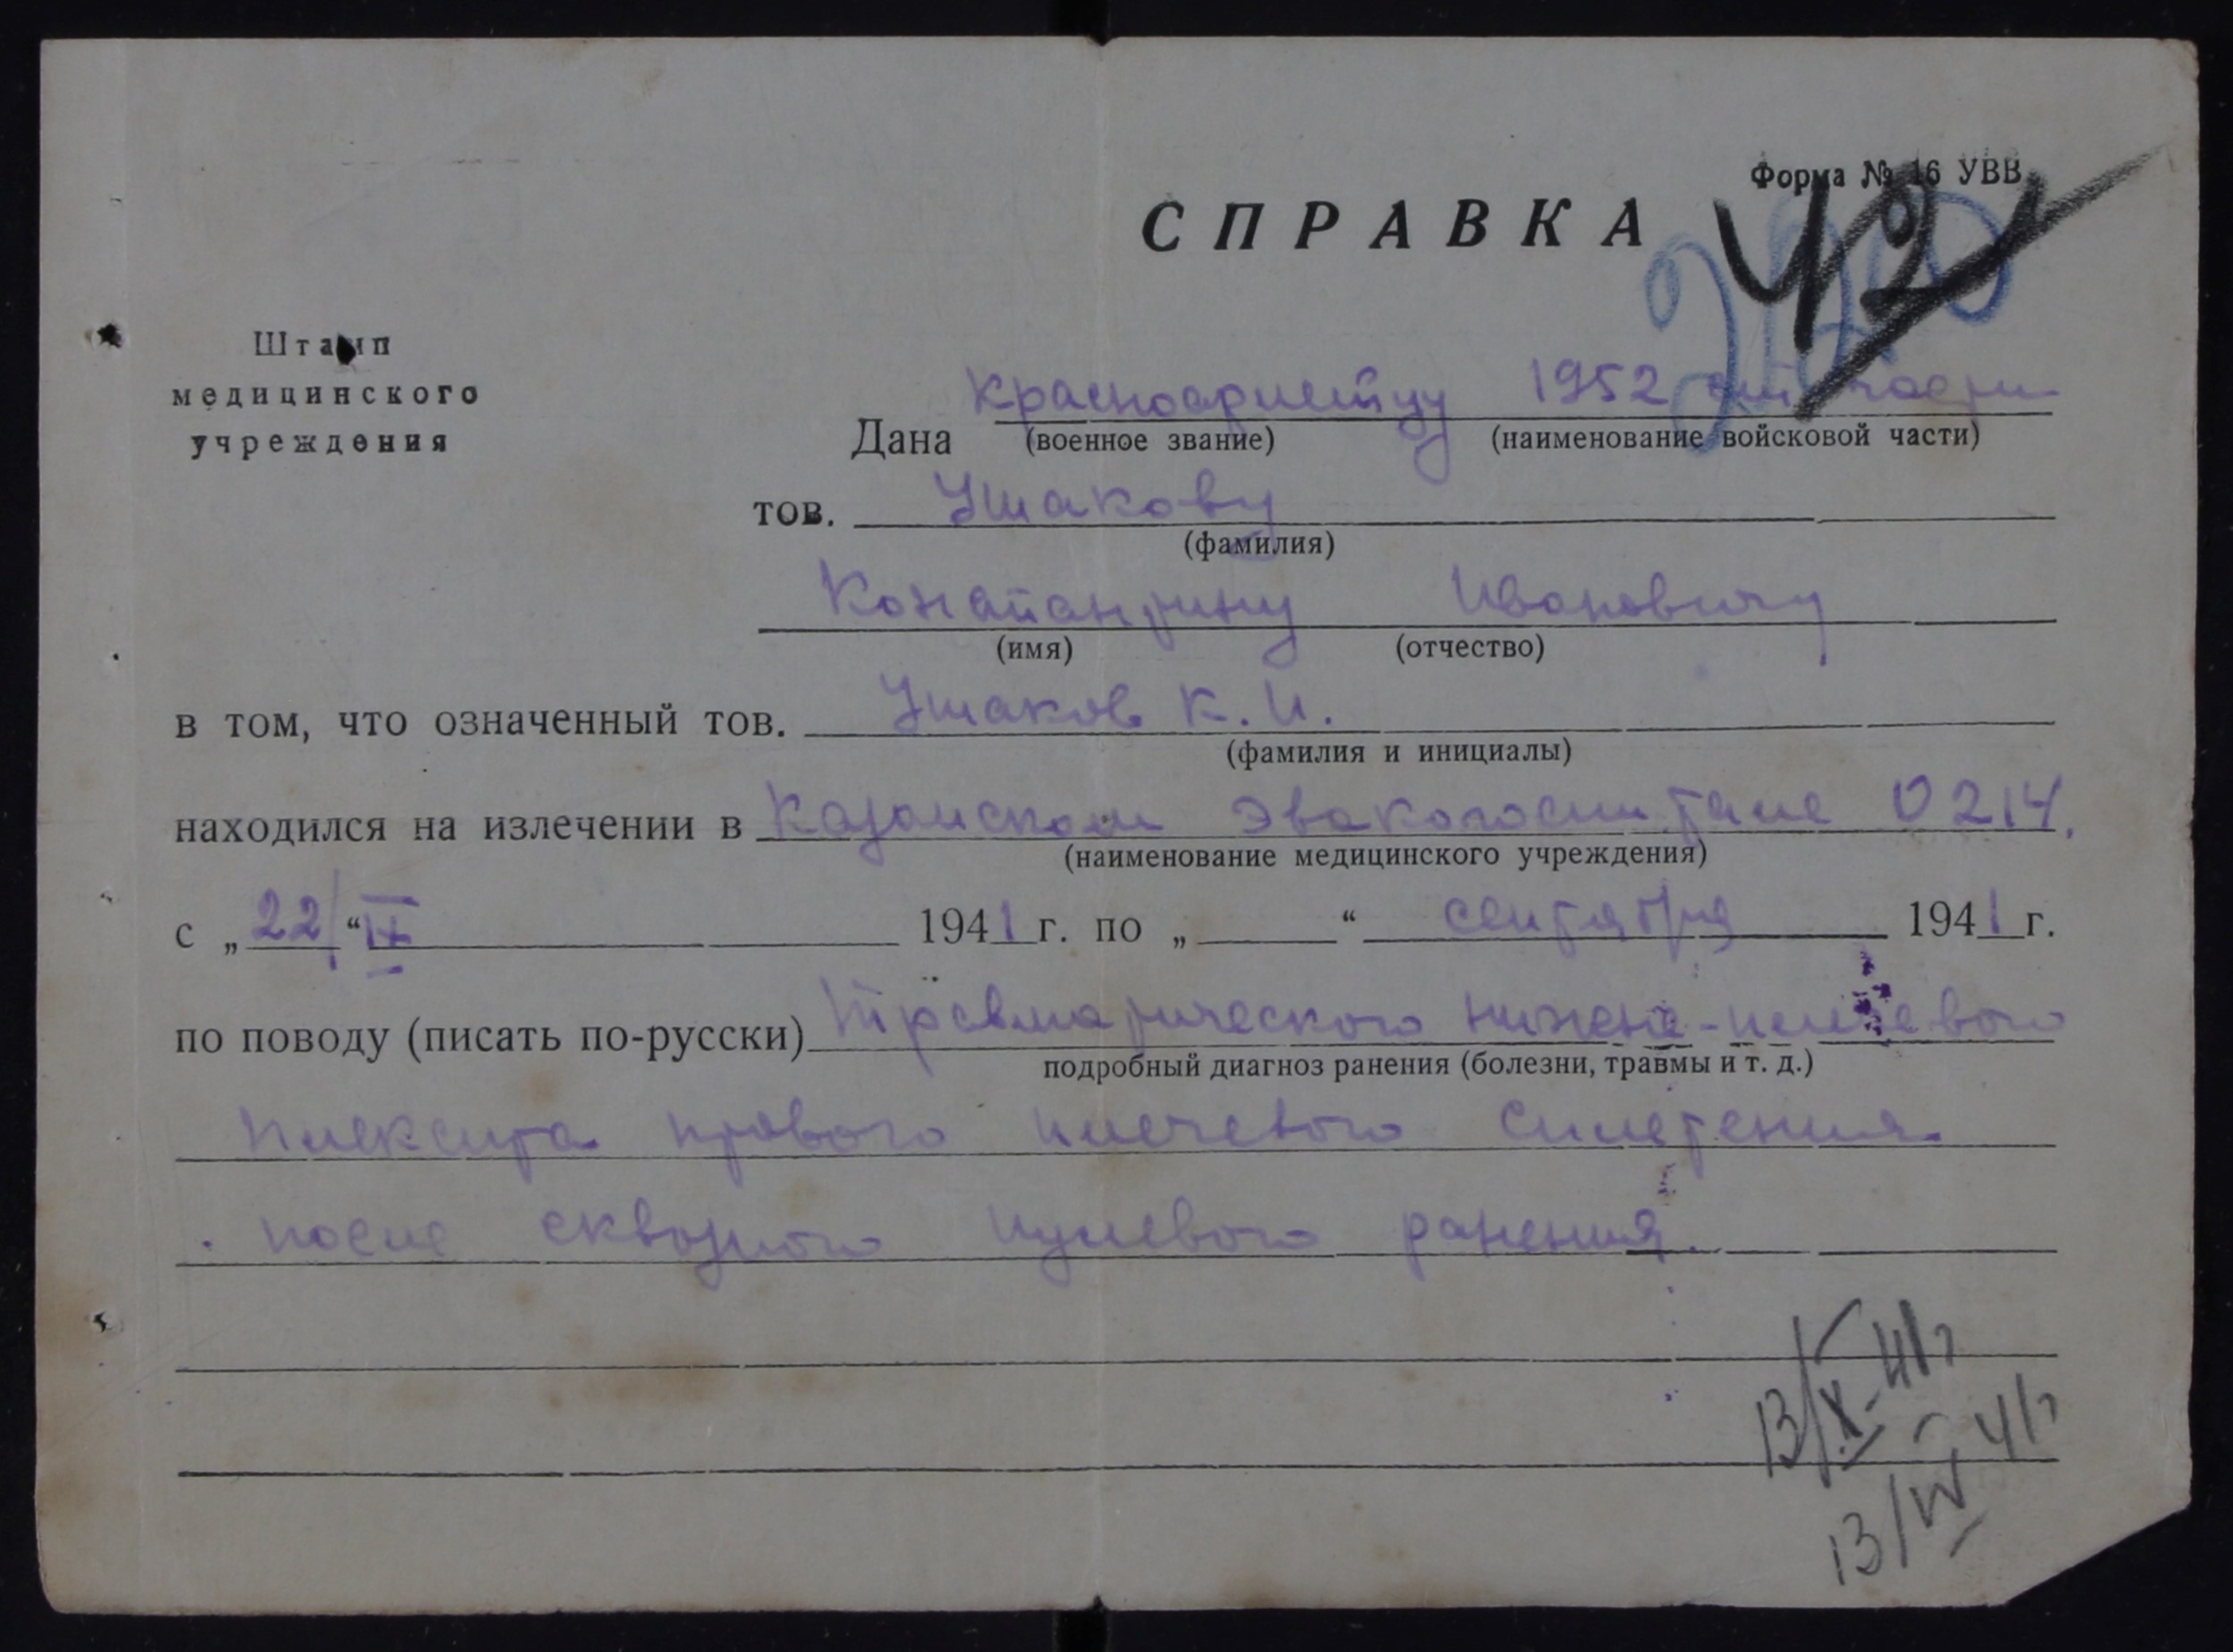 Форма № 16 УВВ
42
СПРАВКА
Штамп
медицинского
учреждения
красноармейцу 1952 части
Дана (военное звание) (наименование войсковой части)
тов. Ушакову
(фамилия)
Константину Ивановичу
(имя) (отчество)
в том, что означенный тов. Ушаков К. И.
(фамилия и инициалы)
находился на излечении в Казанском эвакогоспитале 0214.
(наименование медицинского учреждения)
с „22“ 1941 г. по „ “ сентября 1941 г.
по поводу (писать по-русски) Травматического
подробный диагноз ранения (болезни, травмы и т. д.)
плексита правого плечевого сплетения
после сквозного пулевого ранения.
13/X-41г
13/IV - 41г